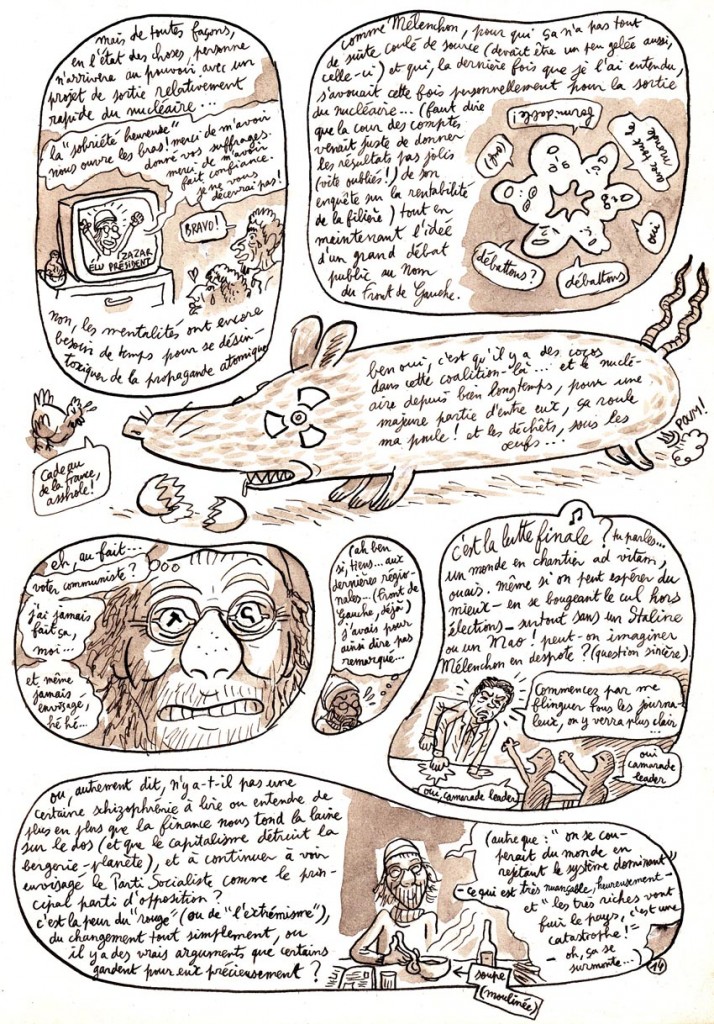 mais de toutes façons,
en l'état des choses, personne
n'arrivera au pouvoir avec un
projet de sortie relativement
rapide du nucléaire...
la "sobriété heureuse"
nous ouvre les bras! merci de m'avoir
donné vos suffrages.
merci de m'avoir
fait confiance.
je ne vous
décevrai pas!
BRAVO!
ZAZAR
ÉLU PRÉSIDENT
non, les mentalités ont encore
besoin de temps pour se désin-
toxiquer de la propagande atomique
comme Mélenchon, pour qui ça n'a pas tout
de suite coulé de source (devait être un peu gelée aussi,
celle-ci) et qui, la dernière fois que je l'ai entendu,
s'avouait cette fois personnellement pour la sortie
du nucléaire... (faut dire
que la cour des comptes
venait juste de donner
les résultats pas jolis
(vite oubliés!) de son
enquête sur la rentabilité
de la filière) tout en
maintenant l'idée
d'un grand débat
public au nom
du Front de Gauche.
formidable!
avec tout le
monde
oui
débattons
débattons?
ben oui, c'est qu'il y a des cocos
dans cette coalition-là... et le nuclé-
aire depuis bien longtemps, pour une
majeure partie d'entre eux, ça roule
ma poule! et les déchets, sous les
œufs...
POUM!
Cadeau
de la france,
asshole!
eh, au fait...
voter communiste?
j'ai jamais
fait ça,
moi...
et même
jamais
envisagé,
hé hé...
(ah ben
si, tiens... aux
dernières régio-
nales... (Front de
Gauche, déjà)
j'avais pour
ainsi dire pas
remarqué...
c'est la lutte finale? tu parles...
un monde en chantier ad vitam,
ouais. même si on peut espérer du
mieux - en se bougeant le cul hors
élections - surtout sans un Staline
ou un Mao! peut-on imaginer
Mélenchon en despote? (question sincère)
Commencez par me
flinguer tous les journa-
leux, on y verra plus clair...
oui, camarade leader
oui
camarade
leader
ou, autrement dit, n'y a-t-il pas une
certaine schizophrénie à lire ou entendre de
plus en plus que la finance nous tond la laine
sur le dos (et que le capitalisme détruit la
bergerie-planète), et à continuer à voir
envisagé le Parti Socialiste comme le prin-
cipal parti d'opposition?
c'est la peur du "rouge" (ou de "l'extrémisme"),
du changement tout simplement, ou
il y a des vrais arguments que certains
gardent pour eux précieusement?
(autre que: "on se cou-
perait du monde en
rejetant le système dominant"
- ce qui est très nuançable, heureusement -
et "les très riches vont
fuir le pays, c'est une
catastrophe!"
- oh, ça se
surmonte...)
soupe
(moulinée)
14